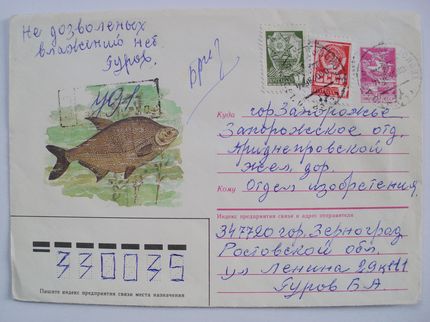 Не дозволеных
вложений нет
Гуров.
Куда
гор. Запорожье
Запорожское отд.
Приднепровской
жел. дор.
Кому
Отдел изобретения.
Индекс предприятия связи и адрес отправителя
347720 гор. Зерноград
Ростовской обл.
ул Ленина
Гуров Б А
330035
Пишите индекс предприятия связи места назначения